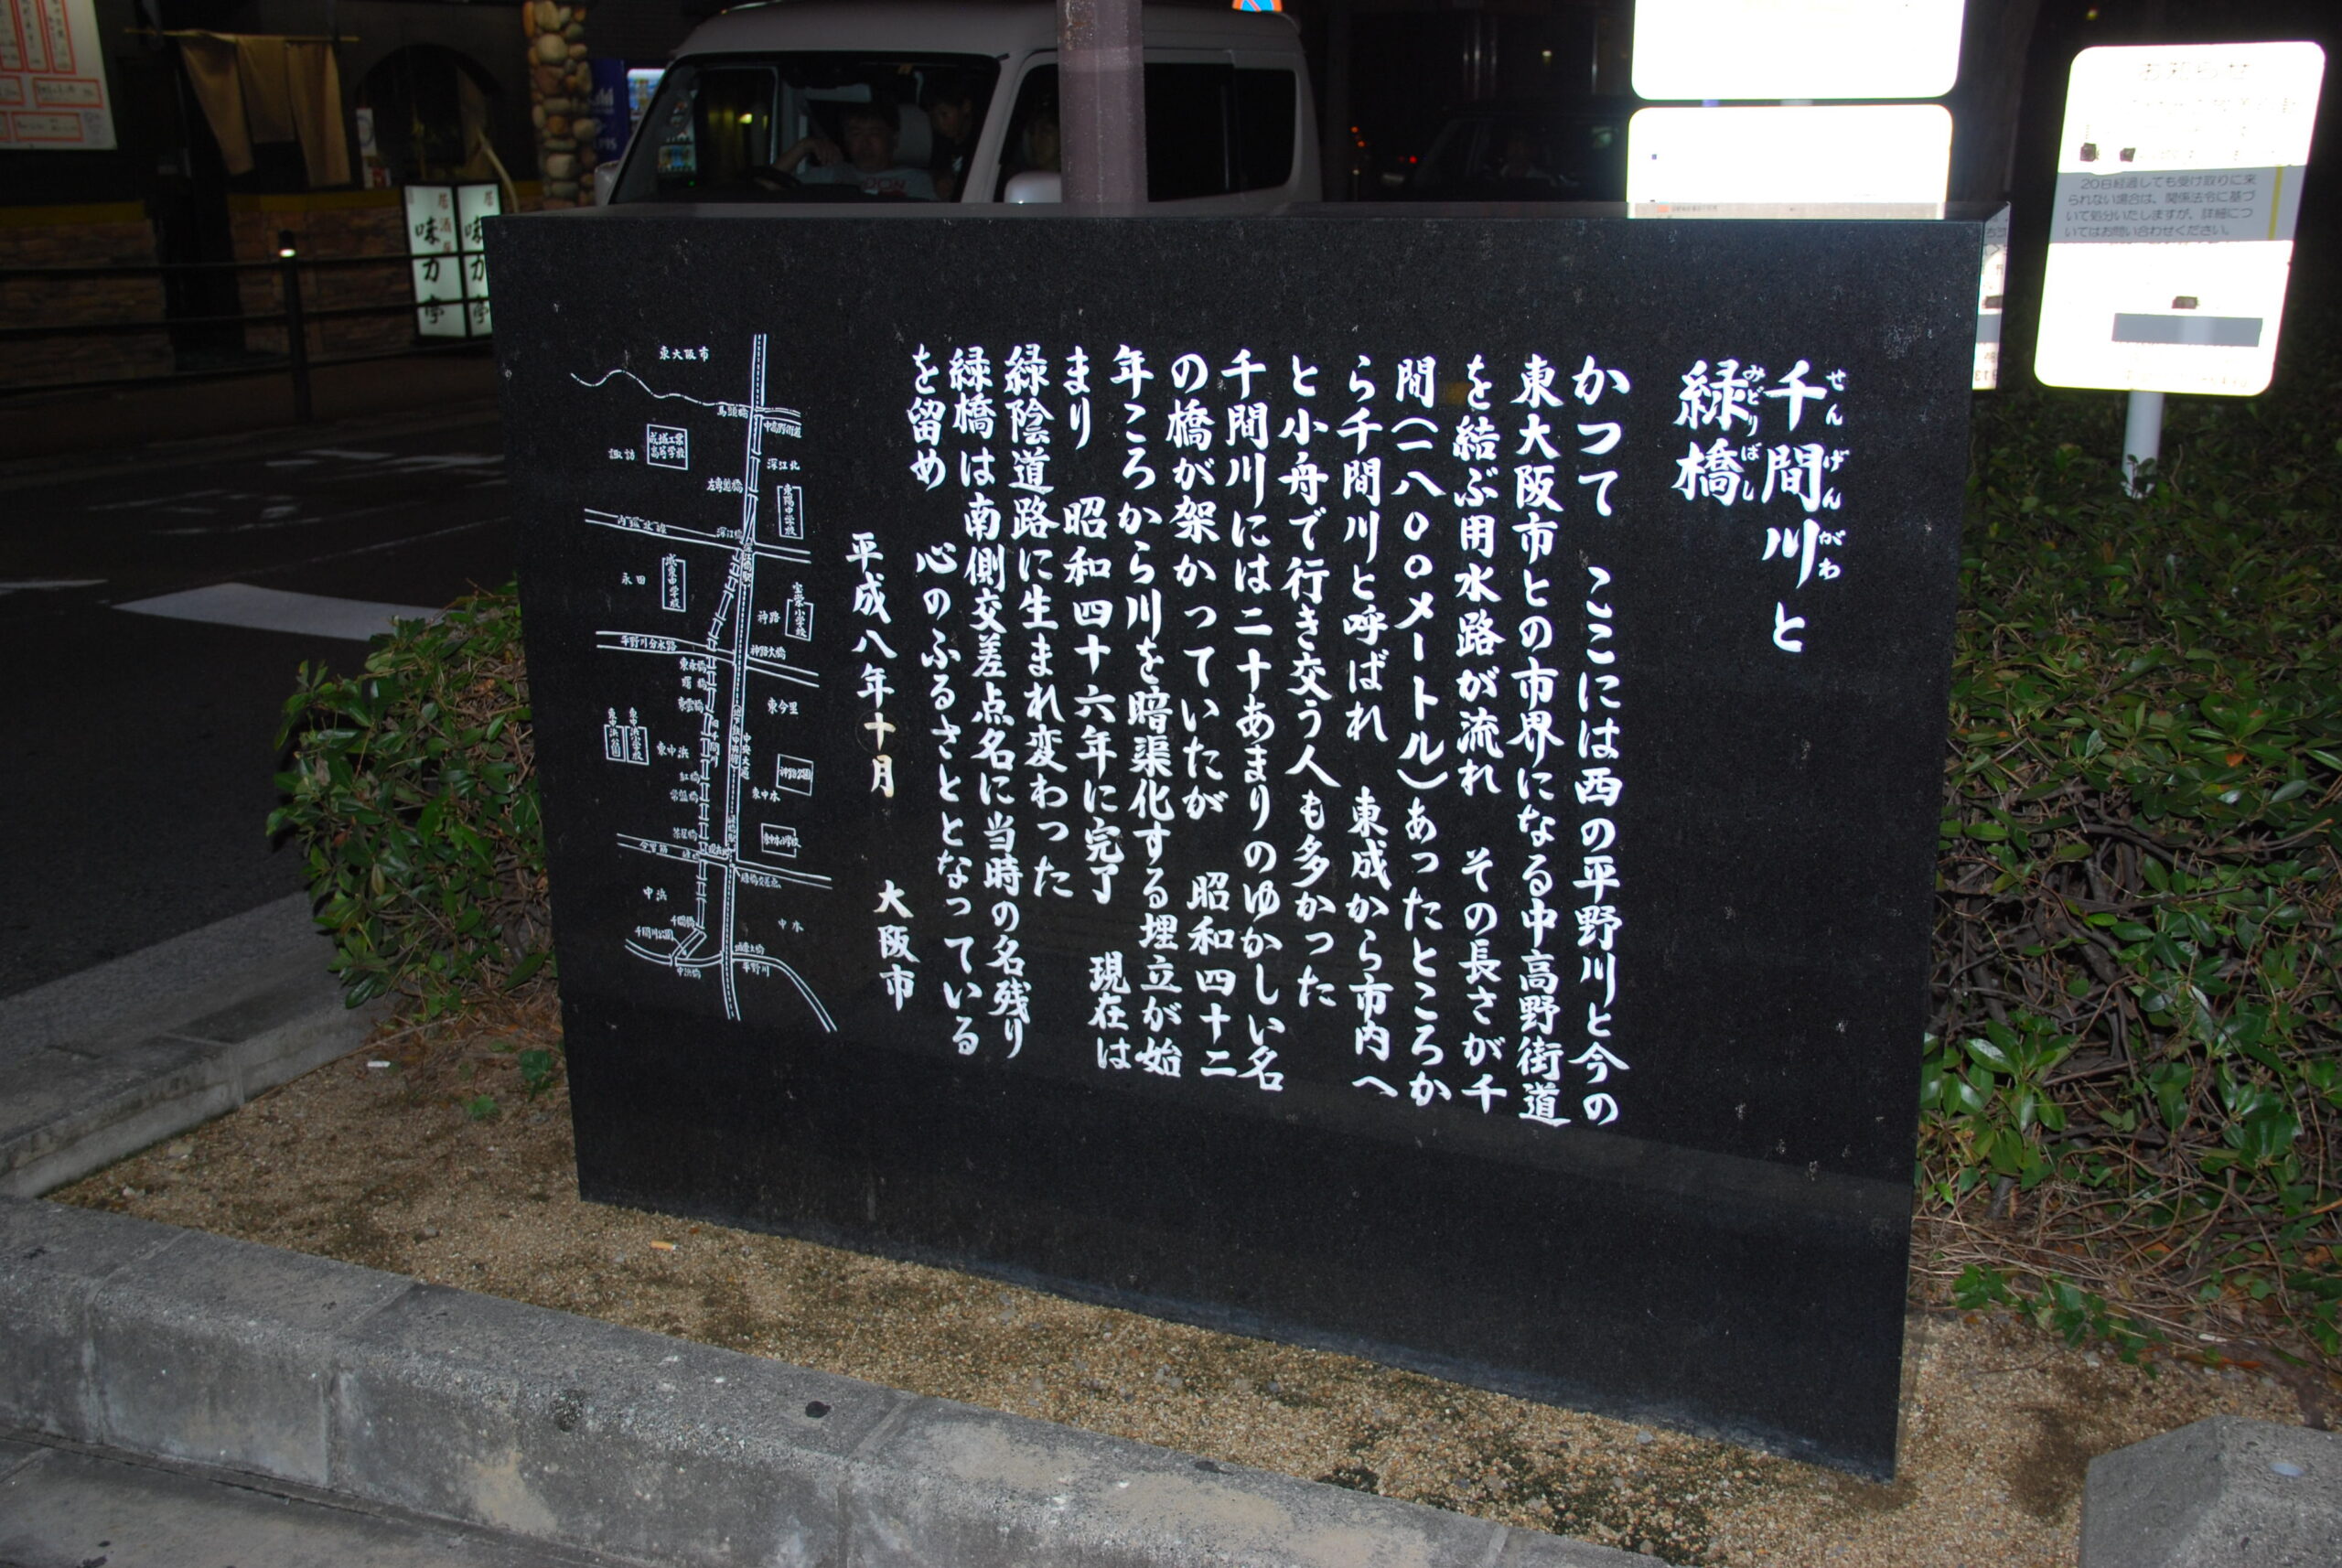 千間川と
せんげんがわ
緑橋
みどりばし
かつて ここには西の平野川と今の
東大阪市との市界になる中高野街道
を結ぶ用水路が流れ その長さが千
間(一八〇〇メートル)あったところか
ら千間川と呼ばれ 東成から市内へ
と小舟で行き交う人も多かった
千間川には二十あまりのゆかしい名
の橋が架かっていたが 昭和四十二
年ころから川を暗渠化する埋立が始
まり 昭和四十六年に完了 現在は
緑陰道路に生まれ変わった
緑橋は南側交差点名に当時の名残り
を留め 心のふるさととなっている
平成八年十月 大阪市
東大阪市
中高野街道
深江北
諏訪
左専道橋
深江橋
永田
神路
平野川分水路
神路大橋
東永橋
東雲橋
東今里
中央大道
東中浜
紅橋
常盤橋
東中本
今里筋
緑橋交差点
中浜
中本
千間川公園
中浜橋
平野川
居酒屋
味力亭
お知らせ
20日経過しても受け取りに来
られない場合は、関係法令に基づ
いて処分いたしますが、詳細につ
いてはお問い合わせください。